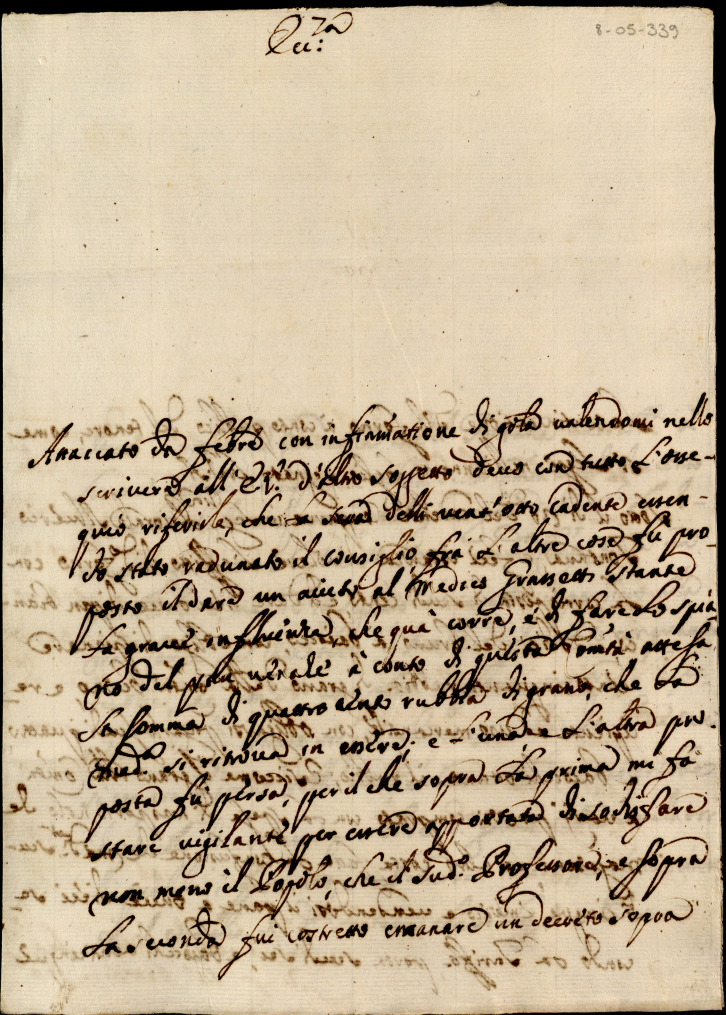 Ecc:za
8-05-339
Attaccato da febre con infiamatione di gola valendomi nello
scrivere all' E.V. d'altro soggetto devo con tutto l'osse-
quio riferirle, che la sera delli vent'otto cadente essen-
do stato radunato il consiglio frà l'altre cose fù pro
posto il dare un aiuto al Medico Grassetti stante
la grave influenza che quà corre, e di fare lo spia
no del pan venale à conto di questa Com.tà attesa
la somma di quattro cento rubbia di grano, che la
med.a si ritrova in essere; e l'una, e l'altra pro
posta fù persa, per il che sopra la prima mi fa
stare vigilante per essere apportata di sodisfare
non meno il Popolo, che il sud.o Professore; e sopra
la seconda fui costretto emanare un decreto sopra